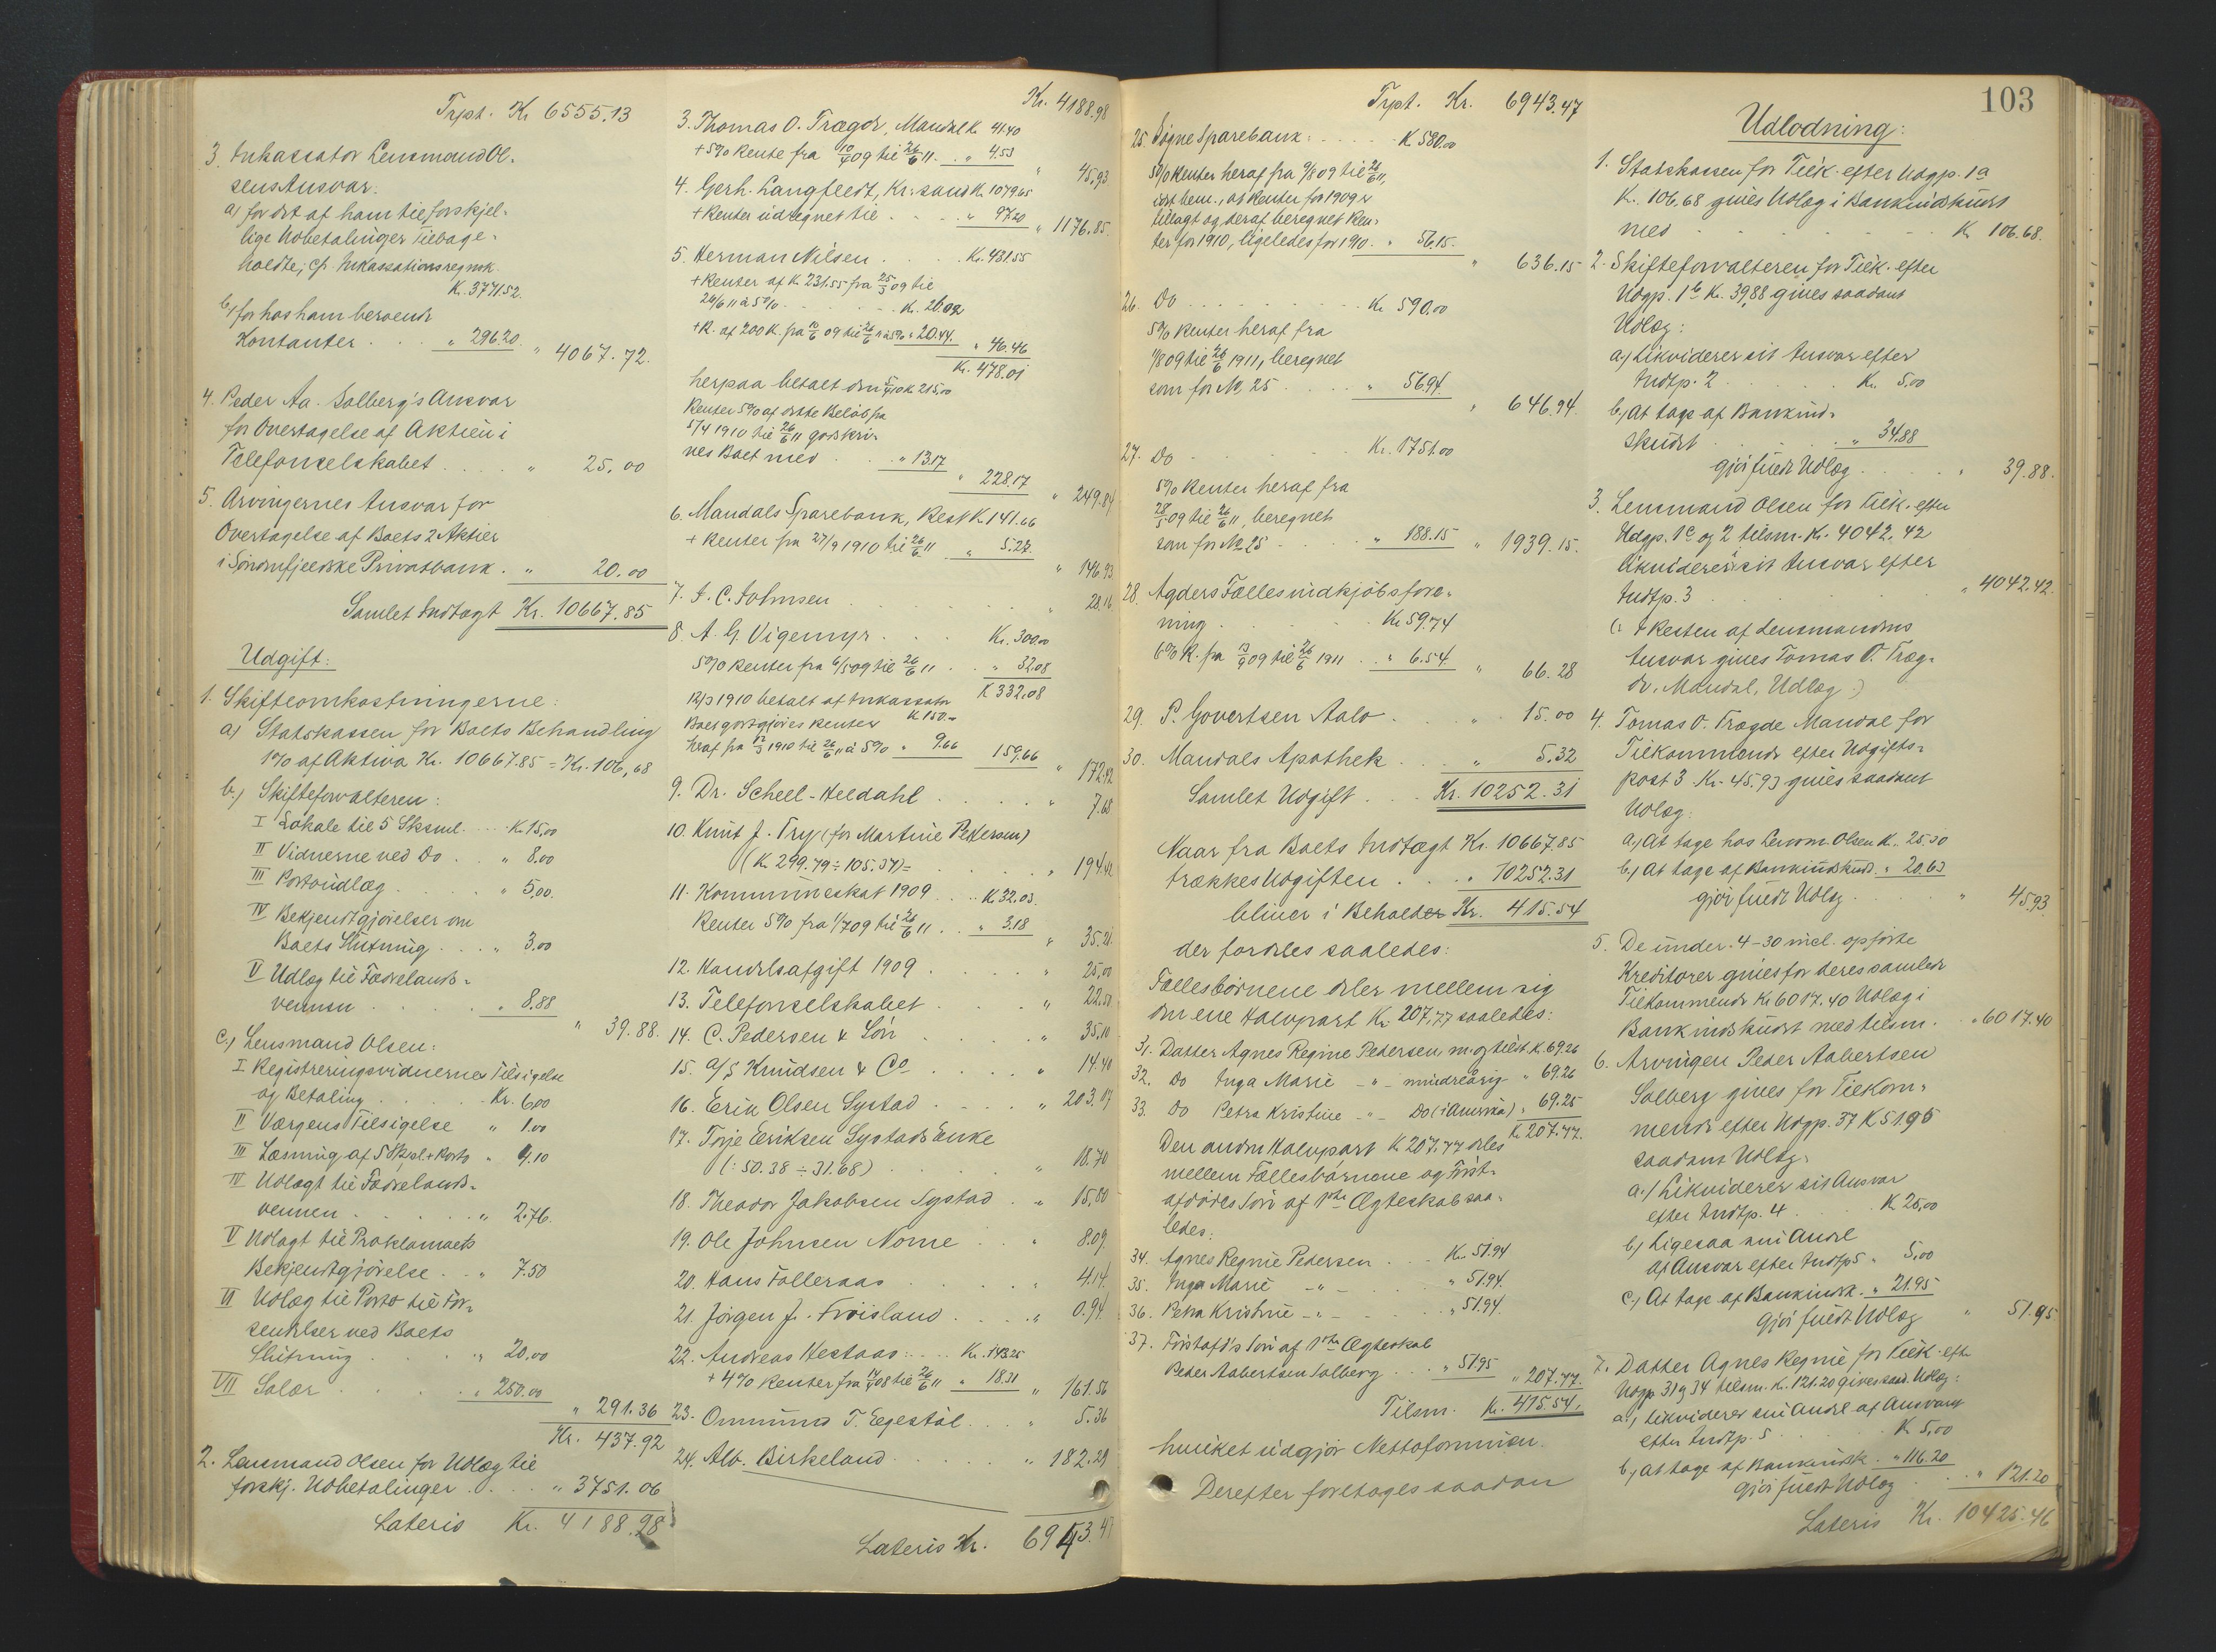 Trpt. Kr 6555.13
3. Inkassator Lensmand Ol-
sens Ansvar:
a) for det af ham til forskjel-
lige Udbetalinger Tilbage-
holdte, cfr. Inkassationsregnsk.
K. 3771.52.
b) for hos ham beroende
Kontanter . . . " 296.20. " 4067.72.
4. Peder Aa. Solberg's Ansvar
for Overtagelse af Aktien i
Telefonselskabet . . . . " 25.00
5. Arvingernes Ansvar for
Overtagelse af Boets 2 Aktier
i Søndenfjeldske Privatbank . " 20.00
Samlet Indtægt Kr. 10667.85
Udgift:
1. Skifteomkostningerne:
a) Statskassen for Boets Behandling
1% af Aktiva Kr. 10667.85 = Kr. 106,68
b.) Skifteforvalteren:
I Lokale til 5 Sksml. . . . K. 15,00
II Vidnerne ved Do . . " 8.00
III Portoudlæg . . . . " 5,00.
IV Bekjendtgjørelser om
Boets Slutning . . . . " 3.00
V Udlæg til Fædrelands-
vennen . . . . . " 8.88
" 39.88.
c.) Lensmand Olsen:
I Registreringsvidnernes Tilsigelse
og Betaling . . . . . Kr. 6,00
II Værgens Tilsigelse " 1.00
III Læsning af 5 Sksl + Porto " 4.10
IV Udlagt til Fædrelands-
vennen . . . . . " 2.76.
V Udlagt til Proklamaets
Bekjendtgjørelse . . " 7.50
VI Udlæg til Porto til For-
sendelser ved Boets
Slutning . . . . " 20,00
VII Salær . . . . . " 250.00
" 291.36
Kr. 437.92
2. Lensmand Olsen for Udlæg til
forskj. Udbetalinger . . . . " 3751.06
Lateris Kr. 4188.98
Kr. 4188.98
3. Thomas O. Trægde, Mandal K. 41.40
+ 5% Rente fra 10/4 09 til 26/6 11. . . " 4.53
" 45.93
4. Gerh. Langfeldt, Kr.sand K. 1079.65
+ Renter udregnet til . . . . " 97.20
" 1176.85.
5. Herman Nilsen . . . . K. 431.55
+ Renter af K. 231.55 fra 25/3 09 til
26/6 11 à 5% . . . . . . K. 26.02
+ R. af 200 K. fra 12/6 09 til 26/6 11 à 5% " 20.44. " 46.46
Kr. 478.01
herpaa betalt den 5/4 10 K 215,00
Renter 5% af dette Beløb fra
5/4 1910 til 26/6 11 godskri-
ves Boet med . . . " 13.17
" 228.17
" 249.84
6. Mandals Sparebank, Rest K. 141.66
+ Renter fra 27/9 1910 til 26/6 11 " 5.27.
" 146.93
7. J. C. Johnsen . . . . . . . " 28.16
8. A. G. Vigemyr . . . . Kr. 300.00
5% Renter fra 6/5 09 til 26/6 11 . . " 32.08
K 332.08
12/3 1910 betalt af Inkassator
K 150.-
Boet godtgjøres Renter
heraf fra 12/3 1910 til 26/6 11 à 5% " 9.66 159.66
" 172.42
9. Dr. Scheel-Heldahl . . . . . " 7.68
10. Knut J. Try (for Martine Pettersen)
(K. 299.79 ÷ 105.37) = . . . . . " 194.42
11. Kommuneskat 1909 . . . K 32.03.
Renter 5% fra 1/7 09 til 26/6 11 . . " 3.18
" 35.21.
12. Handelsafgift 1909 . . . . . " 25,00
13. Telefonselskabet . . . . . "
14. C. Pedersen & Søn . . . . . " 35,10
15. A/S Knudsen & Co . . . . . " 14.40
16. Erik Olsen Systad . . . . . " 203.17
17. Torje Eriksen Systads Enke
(: 50.38 ÷ 31.68) . . . . . " 18.70
18. Theodor Jakobsen Systad . . " 15,80
19. Ole Johnsen Nome . . . " 8.09
20. Hans Folleraas . . . . . " 4.14.
21. Jørgen J. Frøisland . . . . " 0.94.
22. Andreas Hestaas . . . Kr. 143.25
+ 4% Renter fra 14/4 08 til 26/6 11 " 18.31 " 161.56
23. Ommund T. Egestøl . . . " 5.36
24. Alb. Birkeland . . . . . " 182.29
Lateris Kr. 6943.47
103
Trpt. Kr. 6943.47
25. Søgne Sparebank: . . . . K 580.00
5% Renter heraf fra 9/8 09 til 26/6 11,
idet bem., at Renter for 1909 er
tillagt og deraf beregnet Ren-
ter for 1910, ligeledes for 1910. " 56.15.
" 636.15
26. Do . . . . . . . Kr 590.00
5% Renter heraf fra
1/8 09 til 26/6 1911, beregnet
som for No 25 . . . . " 56.94.
" 646.94.
27. Do . . . . . . . Kr. 1751.00
5% Renter heraf fra
28/5 09 til 26/6 11, beregnet
som for No 25 . . . . " 188.15 " 1939.15.
28. Agders Fællesindkjøbsfore-
ning . . . . . . Kr 59.74
6% R. fra 13/9 09 til 26/6 1911 . . " 6.54 " 66.28
29. P. Govertsen Aalo . . . . " 15.00
30. Mandals Apothek . . . . " 5.32
Samlet Udgift . . . Kr. 10252.31
Naar fra Boets Indtægt Kr. 10667.85
trækkes Udgiften . . . " 10252.31
bliver i Behold Kr. 415.54
der fordeles saaledes:
Fællesbørnene deler mellem sig
den ene Halvpart Kr. 207,77 saaledes:
31. Datter Agnes Regine Pedersen, m. og tilst. K. 69.26
32. Do Inga Marie - " - mindreårig " 69.26
33. Do Petra Kristine - " - Do (i Amerika) " 69.25
Kr 207.77.
Den anden Halvpart Kr 207.77 deles
mellem Fællesbørnene og Først-
afdødes Søn af 1ste Ægteskab saa-
ledes:
34. Agnes Regine Pedersen . . . Kr. 51.94
35. Inga Marie - " - " 51.94.
36. Petra Kristine - " - " 51.94.
37. Førstafd's Søn af 1ste Ægteskab
Peder Aabertsen Solberg . . " 51.95 " 207.77.
Tilsm. Kr. 415.54.
hvilket udgjør Nettoformuen.
Derefter foretages saadan
Udlodning:
1. Statskassen for Tilk. efter Udgp. 1a
K. 106.68 gives Udlæg i Bankindskudet
med . . . . . . . K. 106.68.
2. Skifteforvalteren for Tilk. efter
Udgp. 1b K. 39,88 gives saadant
Udlæg:
a.) Likviderer sit Ansvar efter
Indtp. 2 . . . . . K. 5.00
b.) At tage af Bankind-
skudet . . . . . " 34.88
gjør fuldt Udlæg . . . . " 39.88.
3. Lensmand Olsen for Tilk. efter
Udgp. 1c og 2 tilsm. K. 4042.42
likviderer i sit Ansvar efter
Indtp. 3 . . . . . . " 4042.42.
(: Resten af Lensmandens
Ansvar gives Tomas O. Træg-
de, Mandal, Udlæg :)
4. Tomas O. Trægde Mandal for
Tilkommende efter Udgifts-
post 3 Kr. 45.93 gives saadant
Udlæg:
a.) At tage hos Lensm. Olsen K. 25.30
b.) At tage af Bankindskud. " 20.63
gjør fuldt Udlæg . . . . " 45.93
5. De under 4-30 incl. opførte
Kreditorer gives for deres samlede
Tilkommende Kr 6017.40 Udlæg i
Bankindskudet med tilsm. . " 6017.40
6. Arvingen Peder Aabertsen
Solberg gives for Tilkom-
mende efter Udgp. 37 K 51.95
saadant Udlæg:
a.) Likviderer sit Ansvar
efter Indtp. 4 . . . . K. 25,00
b.) Ligesaa sin Andel
af Ansvar efter Indtp 5 " 5.00
c.) At tage af Bankindsk. " 21.95
gjør fuldt Udlæg " 51.95
7. Datter Agnes Regine for Tilk. efter
Udgp. 31 og 34 tilsm. K. 121.20 gives saad. Udlæg:
a.) likviderer sin Andel af Ansvaret
efter Indtp. 5 . . . . K 5,00
b.) At tage af Bankindsk. " 116.20
gjør fuldt Udlæg . . . " 121.20
Lateris Kr. 10425.46